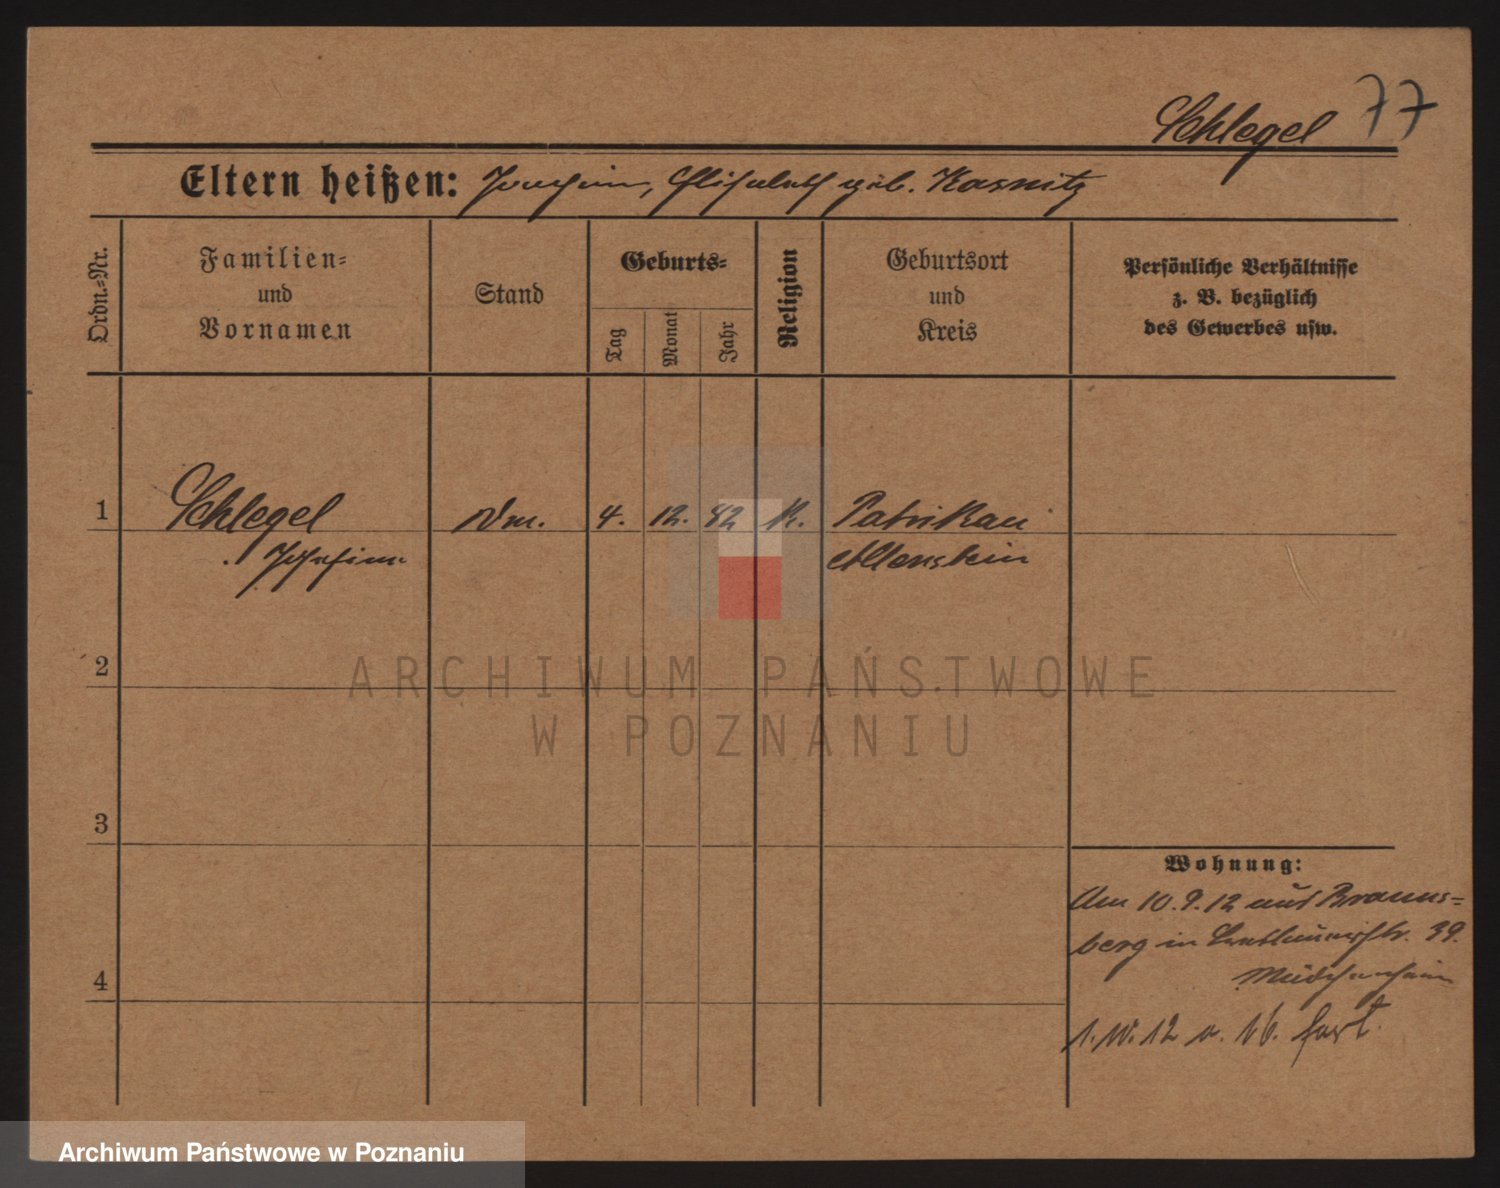 Schlegel 77
Eltern heißen: Joachim, Elisabeth geb. Kasnitz
Ordn.-Nr.
Familien-
und
Vornamen
Stand
Geburts-
Tag
Monat
Jahr
Religion
Geburtsort
und
Kreis
Persönliche Verhältnisse
z. B. bezüglich
des Gewerbes usw.
1 Schlegel 4. 12. K. Patrikau
Allenstein
2
3
4
Wohnung:
Am 10.9.12 aus Brauns-
berg in 39.
Mädchenheim
ARCHIWUM PAŃSTWOWE
W POZNANIU
Archiwum Państwowe w Poznaniu